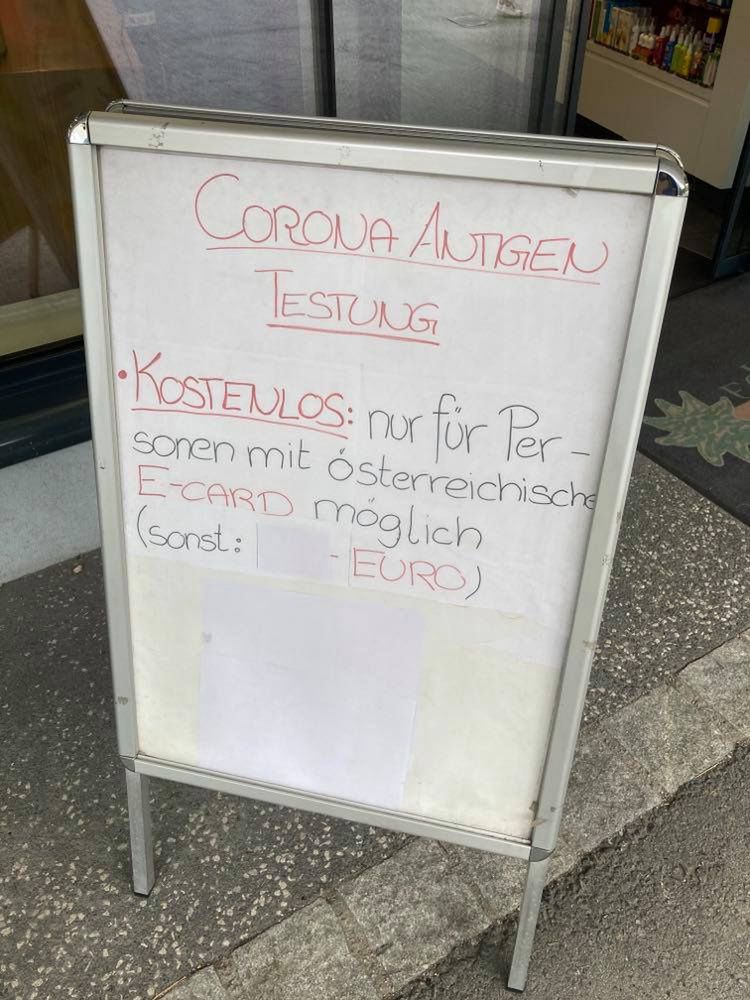 CORONA ANTIGEN
TESTUNG
• KOSTENLOS: nur für Per-
sonen mit österreichische
E-CARD möglich
(sonst: - EURO)